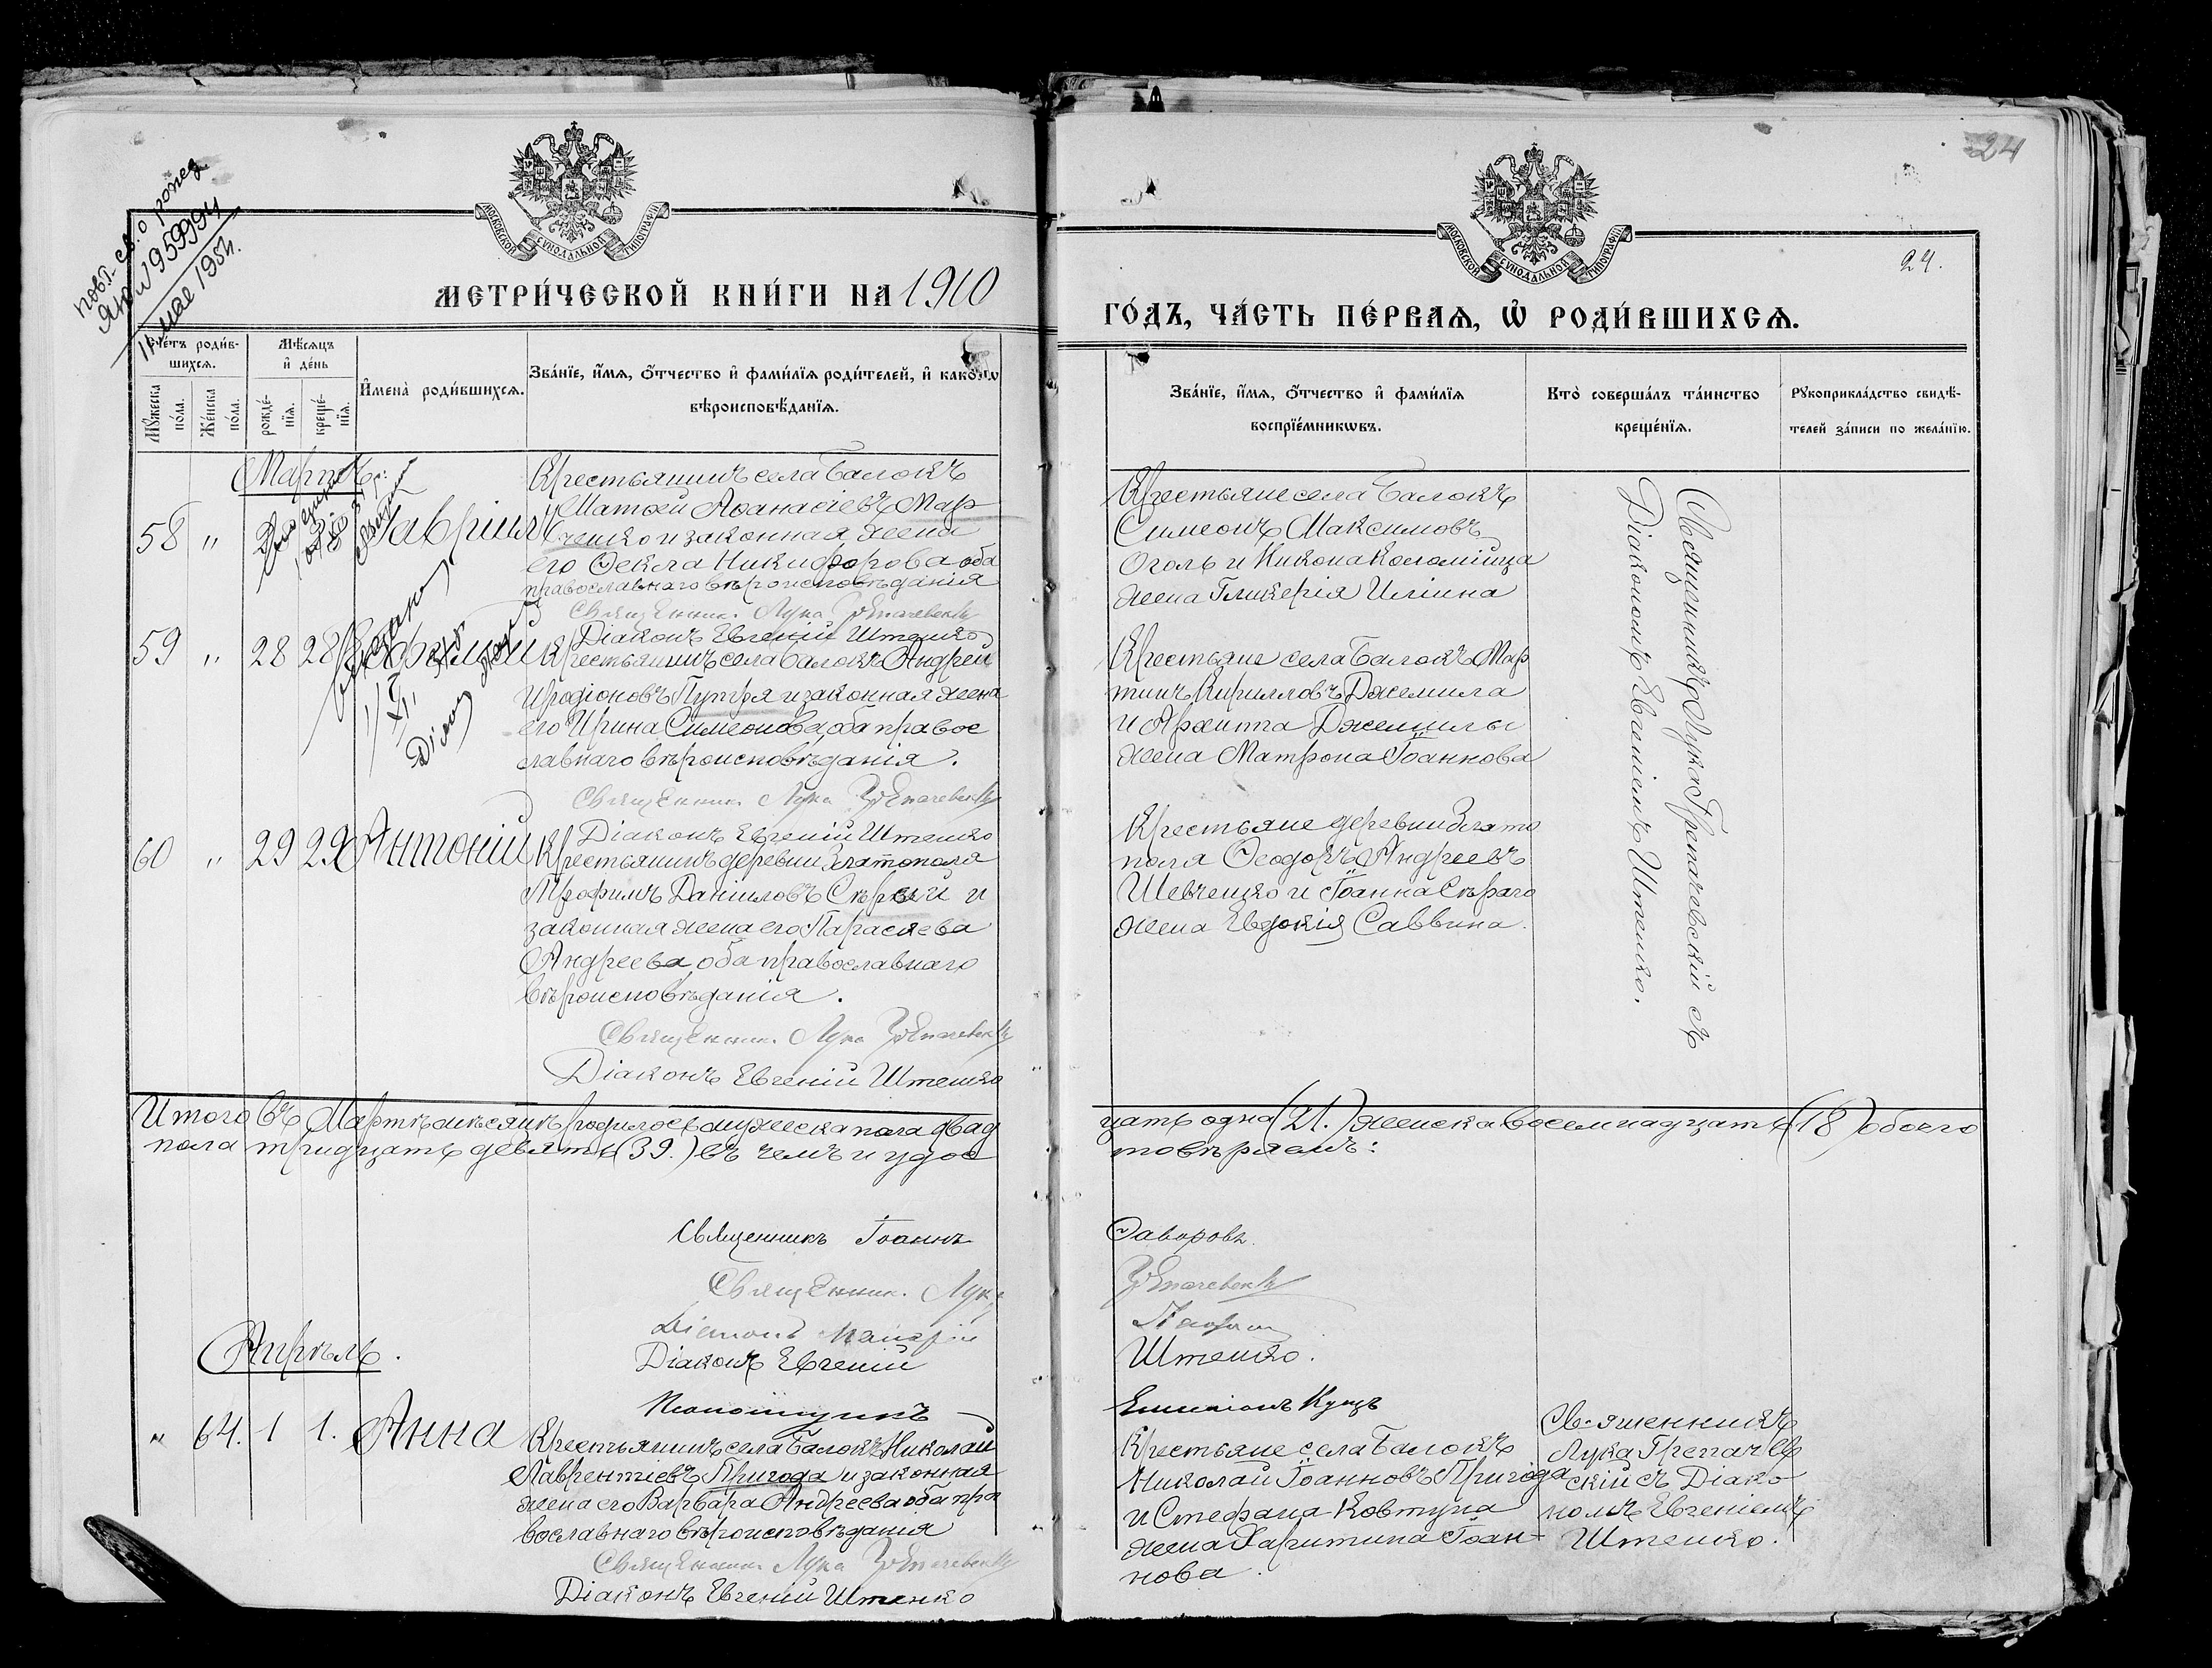 24
24.
повт. св. о рожд.
ЯЮ № 959994
11 мая 1954.
МОСКОВСКОЙ СѴНОДАЛЬНОЙ ТИПОГРАФІИ
МЕТРИ́ЧЕСКОЙ КНИ́ГИ НА 1910
МОСКОВСКОЙ СѴНОДАЛЬНОЙ ТИПОГРАФІИ
ГО́ДЪ, ЧА́СТЬ ПЕ́РВАѦ, Ѡ҆ РОДИ́ВШИХСѦ.
Счетъ роди́в-
шихсѧ.
Мꙋжеска по́ла.
Же́нска по́ла.
Мѣ́сѧцъ
и҆ де́нь
рожде́-
нїѧ.
креще́-
нїѧ.
И҆мена̀ роди́вшихсѧ.
Зва́нїе, и҆́мѧ, ѻ҆́тчество и҆ фами́лїѧ роди́телей, и҆ како́гѡ
вѣроисповѣ́данїѧ.
Зва́нїе, и҆́мѧ, ѻ҆́тчество и҆ фами́лїѧ
воспрїе́мникѡвъ.
Кто̀ соверша́лъ та́инство
креще́нїѧ.
Рꙋкоприкла́дство свидѣ́-
телей за́писи по жела́нїю.
Мартъ
58 " Гавріилъ
Крестьянинъ села Балокъ
Матѳей Аѳанасіевъ Мар
ченко и законная жена
его Ѳекла Никифорова оба
православнаго вѣроисповѣданія
Священник. Лука Грепачевскій
Діаконъ Евгеній Штенко
Крестьяне села Балокъ
Симеонъ Максимовъ
Оголь и Никона Коломійца
жена Гликерія Иліина
Священникъ Лука Грепачевскій съ
Діакономъ Евгеніемъ Штенко.
59 " 28 28
Крестьянинъ села Балокъ Андрей
Иродіоновъ Путря и законная жена
его Ирина Симеонова, оба право
славнаго вѣроисповѣданія.
Священник. Лука Грепачевскій
Діаконъ Евгеній Штенко
Крестьяне села Балокъ Мар
тинъ Кирилловъ Джемила
и Архиппа Джемилы
жена Матрона Іоаннова
60 " 29 29 Антоній
Крестьянинъ деревни Златополя
Трофимъ Даніиловъ Сѣрый и
законная жена его Параскева
Андреева, оба православнаго
вѣроисповѣданія.
Священник. Лука Грепачевскій
Діаконъ Евгеній Штенко
Крестьяне деревни Злато
поля Ѳеодоръ Андреевъ
Шевченко и Іоанна Сѣраго
жена Евдокія Саввина.
Итого въ Мартѣ мѣсяцѣ родилось мужеска пола двад
цать одна (21.) женска восемнадцать (18) обоего
пола тридцать девять (39.) въ чемъ и удос
товѣряемъ:
Священникъ Іоаннъ
Ѳаворовъ.
Священник. Лука
Грепачевскій
Діаконъ
Діаконъ Евгеній
Штенко.
Псаломщикъ
Кущъ
Апрѣль.
" 64. 1 1. Анна
Крестьянинъ села Балокъ Николай
Лаврентіевъ Пригода и законная
жена его Варвара Андреева оба пра
вославнаго вѣроисповѣданія
Священник. Лука Грепачевскій
Діаконъ Евгеній Штенко
Крестьяне села Балокъ
Николай Іоанновъ Пригода
и Стефана Ковтуна
жена Харитина Іоан-
нова.
Священникъ
Лука Грепачев
скій съ Діако
номъ Евгеніемъ
Штенко.